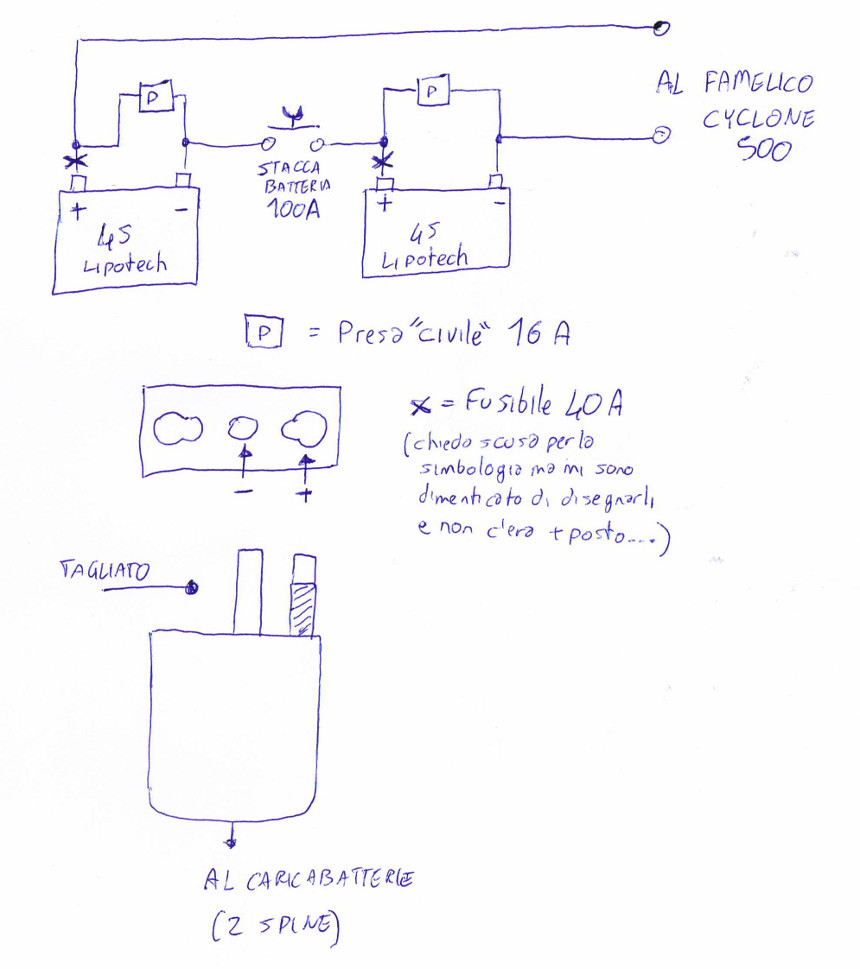 AL FAMELICO
CYCLONE
500
P
P
STACCA
BATTERIA
100A
+ -
4S
Lipotech
+ -
4S
Lipotech
P = Presa "civile" 16 A
x = Fusibile 40A
(chiedo scusa per la
simbologia ma mi sono
dimenticato di disegnarli
e non c'era + posto....)
- +
TAGLIATO
AL CARICABATTERIE
(2 SPINE)